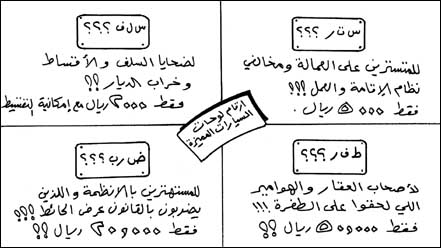 س ت ر ؟؟؟
للمتسترين على العمالة ومخالفي
نظام الإقامة والعمل !!؟
فقط ٥٠٠٠ ريال .
س ل ف ؟؟؟
لضحايا السلف والأقساط
وخراب الديار !!؟
فقط ٣٠٠٠ ريال مع إمكانية التقسيط
ارقام لوحات
السيارات المميزة
ط ف ر ؟؟؟
لأصحاب العقار والهوامير
اللي لحقوا على الطفرة !!!
فقط ٥٠,٠٠٠ ريال ؟؟
ض ر ب ؟؟؟
للمستهترين بالأنظمة واللذين
يضربون بالقانون عرض الحائط ؟؟؟
فقط ٣٠,٠٠٠ ريال ؟؟